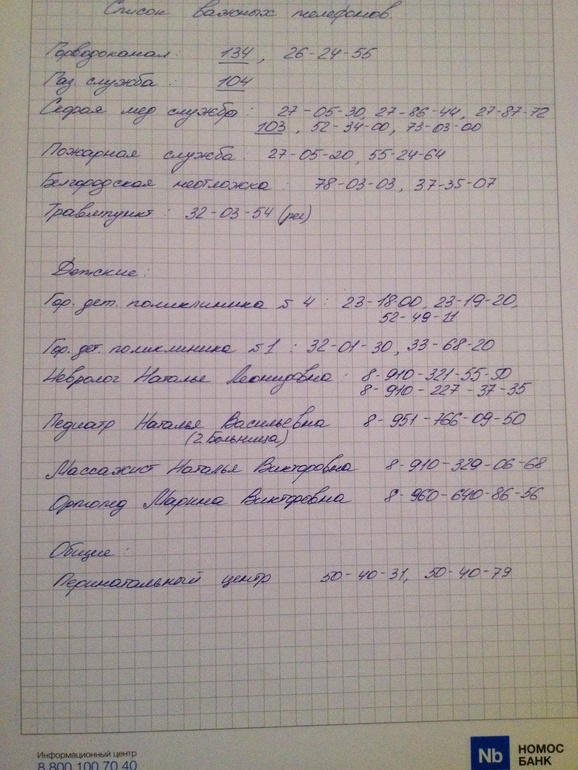 Список важных телефонов.
Горводоканал: 134, 26-24-55
Газ. служба: 104
Скорая мед служба: 27-05-30, 27-86-44, 27-87-72
103, 52-34-00, 73-03-00
Пожарная служба: 27-05-20, 55-24-64
Белгородская неотложка: 78-03-03, 37-35-07
Травмпункт: 32-03-54 (рег)
Детские:
Гор. дет. поликлиника №4: 23-18-00, 23-19-20,
52-49-11
Гор. дет. поликлиника №1: 32-01-30, 33-68-20
Невролог Наталье Леонидовна: 8-910-321-55-50
8-910-227-37-35
Педиатр Наталья Васильевна 8-951-766-09-50
(2. Больница)
Массажист Наталье Викторовна 8-910-329-06-68
Ортопед Марина Викторовна 8-960-640-86-56
Общие:
Перинатальный центр 50-40-31, 50-40-79
Информационный центр
8 800 100 70 40
Nb НОМОС
БАНК